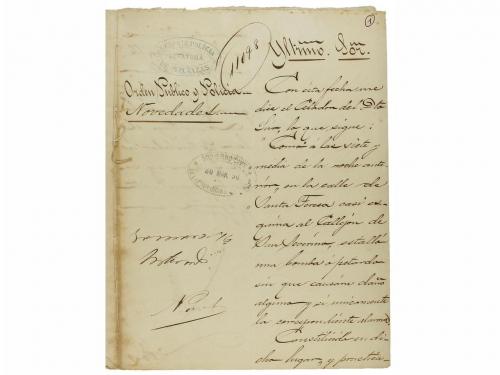 1
Yltmo. Sor.
11698
Orden Público y Policía
Novedades
Con esta fecha me
dice el Celador del Dto
lo que sigue:
"Como á las siete y
media de la noche ante
rior, en la calle de
Santa Teresa casi es
quina al Callejón de
San Severino, estalló
una bomba ó petardo
sin que causára daño
alguno y si unicamente
la correspondiente alarma
Constituido en di
cho lugar, y practica